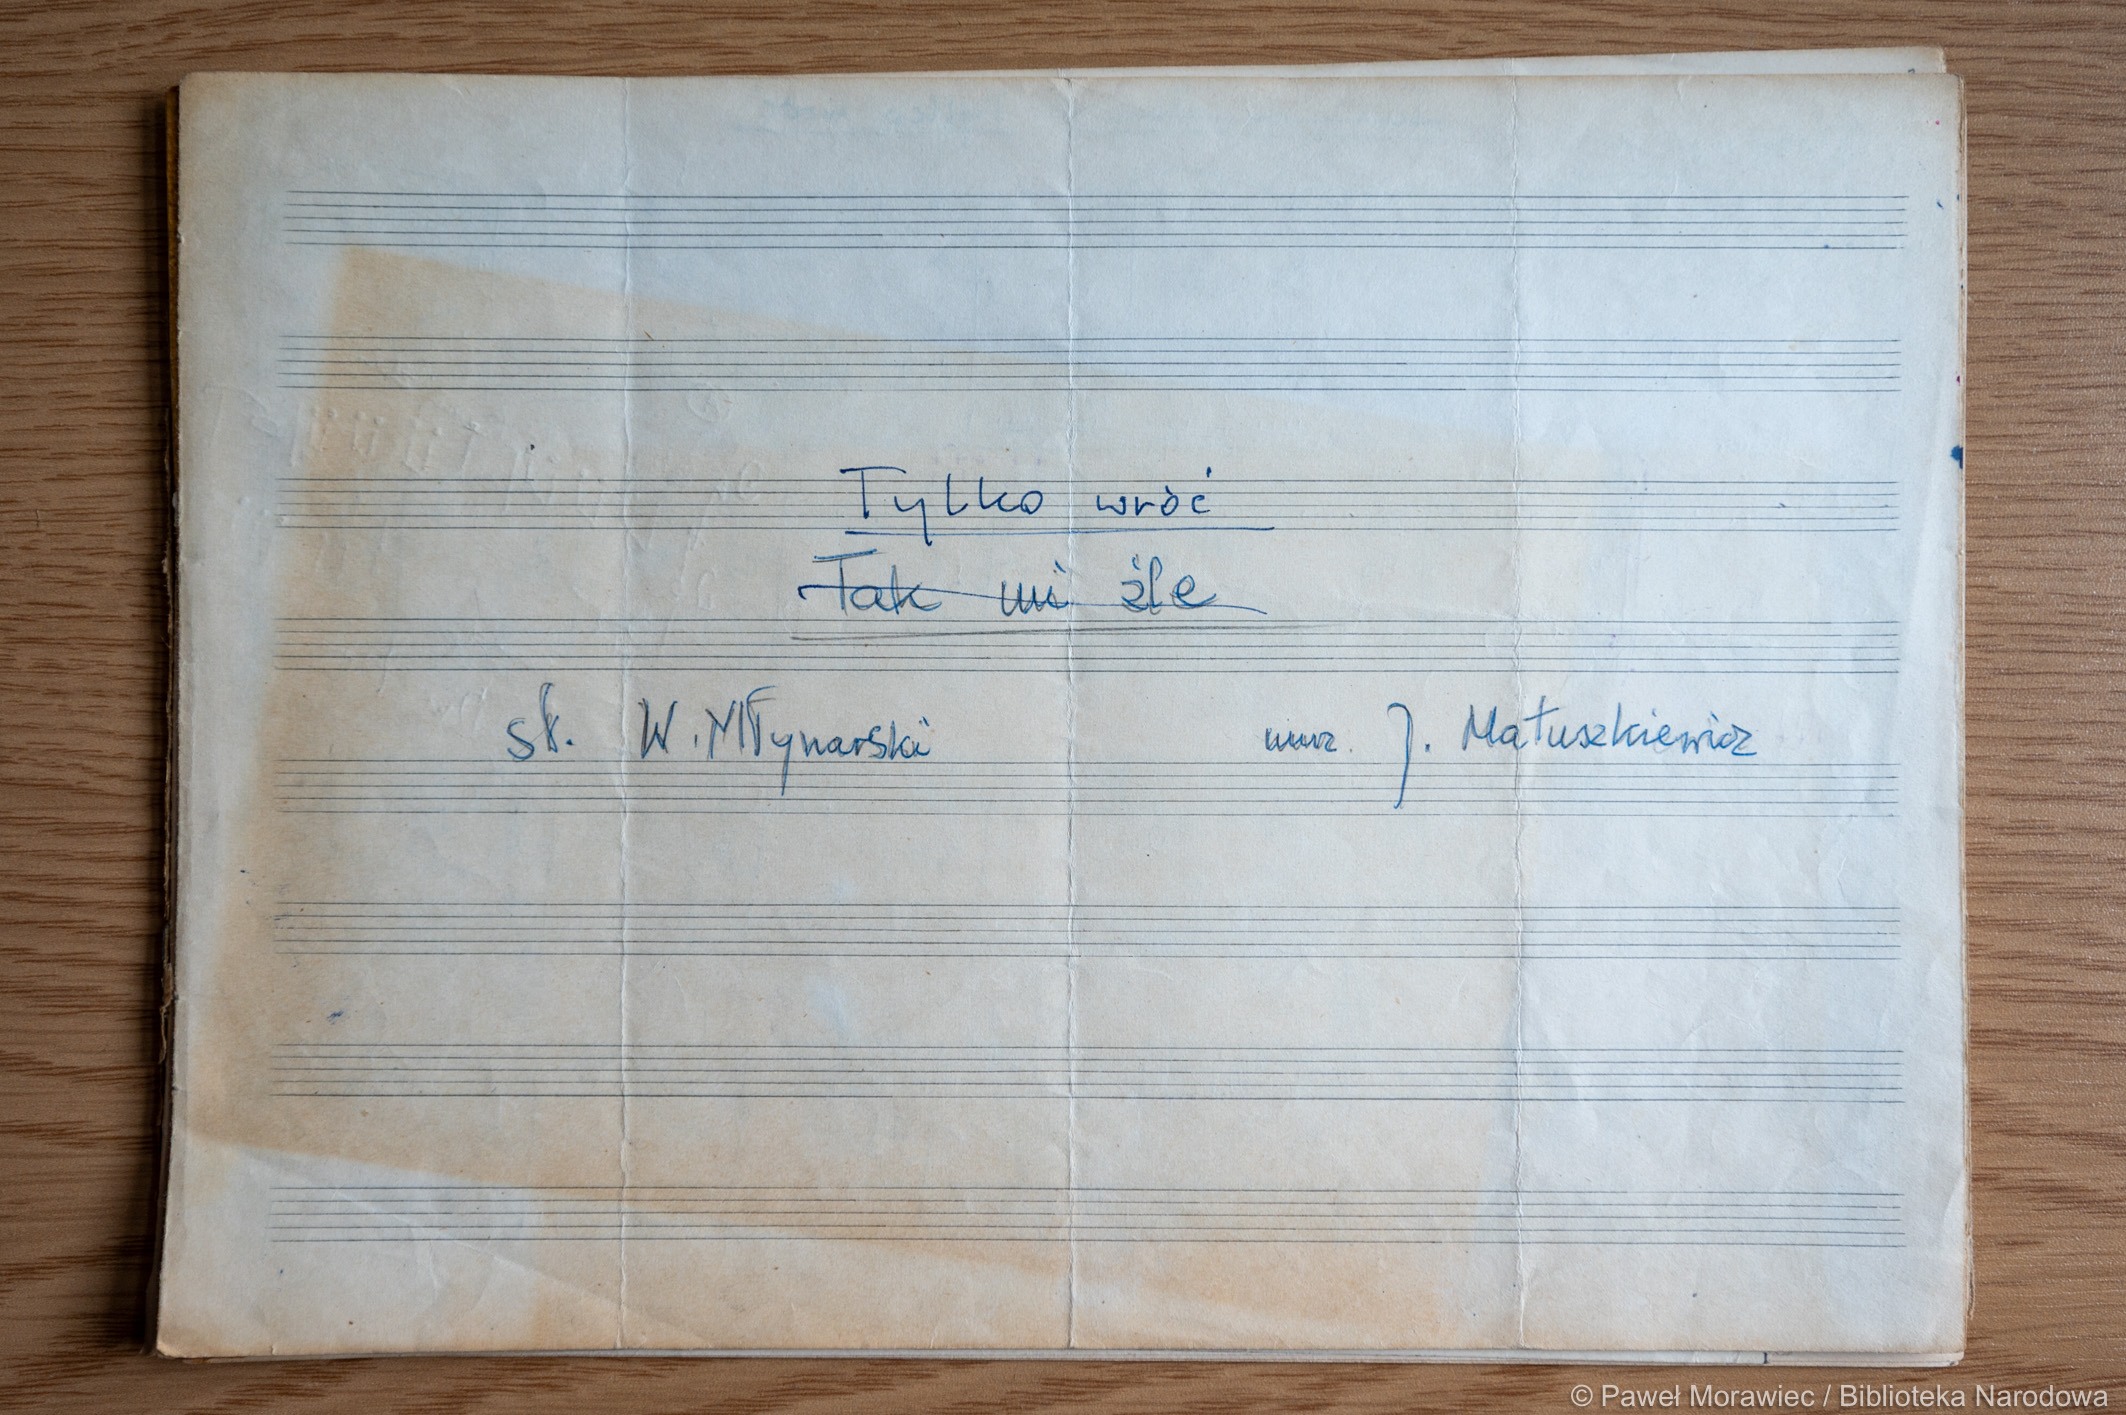 Tylko wróć
Tak mi źle
sł. W. Młynarski muz. J. Matuszkiewicz
© Paweł Morawiec / Biblioteka Narodowa